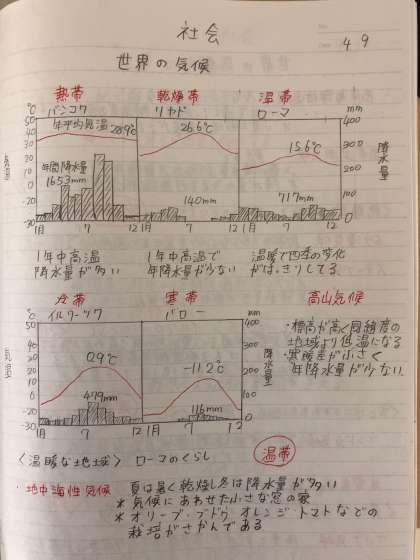 社会
49
世界の気候
熱帯 乾燥帯 温帯
バンコク リヤド ローマ
℃ mm
年平均気温 28.9℃ 26.6℃ 15.6℃
年間降水量
1653mm 140mm 717mm
50 40 30 20 10 0 -30
400 300 200 100 0
気温 降水量
1月 7 12 1月 7 12 1月 7 12
1年中高温 1年中高温で 温暖で四季の変化
降水量が多い 年降水量が少ない がはっきりしてる
冷帯 寒帯 高山気候
イルクーツク バロー
℃ mm
0.9℃ -11.2℃
479mm 116mm
50 40 30 20 10 0 -30
400 300 200 100 0
気温 降水量
1月 7 12 1月 7 12
・標高が高く同緯度の
地域より低温になる
・寒暖差が小さく
年降水量が少ない
〈温暖な地域〉 ローマのくらし 温帯
・地中海性気候 夏は暑く乾燥し冬は降水量が多い
*気候にあわせた小さな窓の家
*オリーブ・ブドウ、オレンジ・トマトなどの
栽培がさかんである